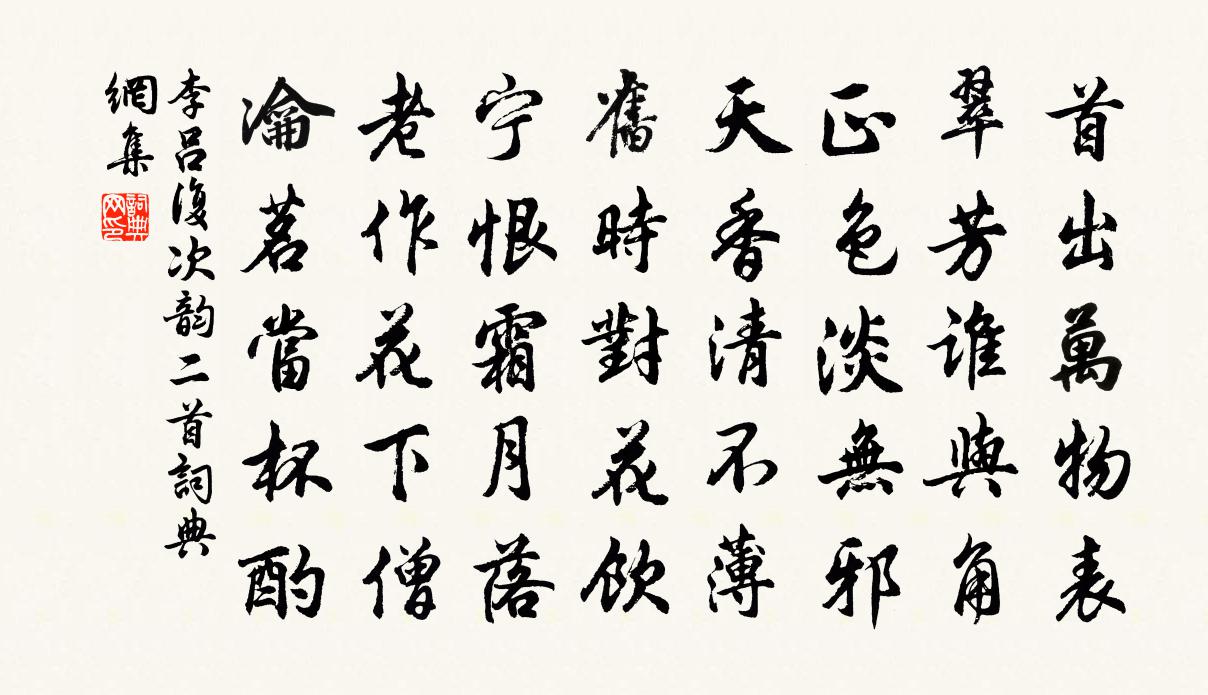 首出萬物表
翠芳谁與角
正色淡無邪
天香清不薄
舊時對花飲
宁恨霜月落
老作花下僧
瀹茗當杯酌
李吕復次韵二首詞典
網集
詞典
网印